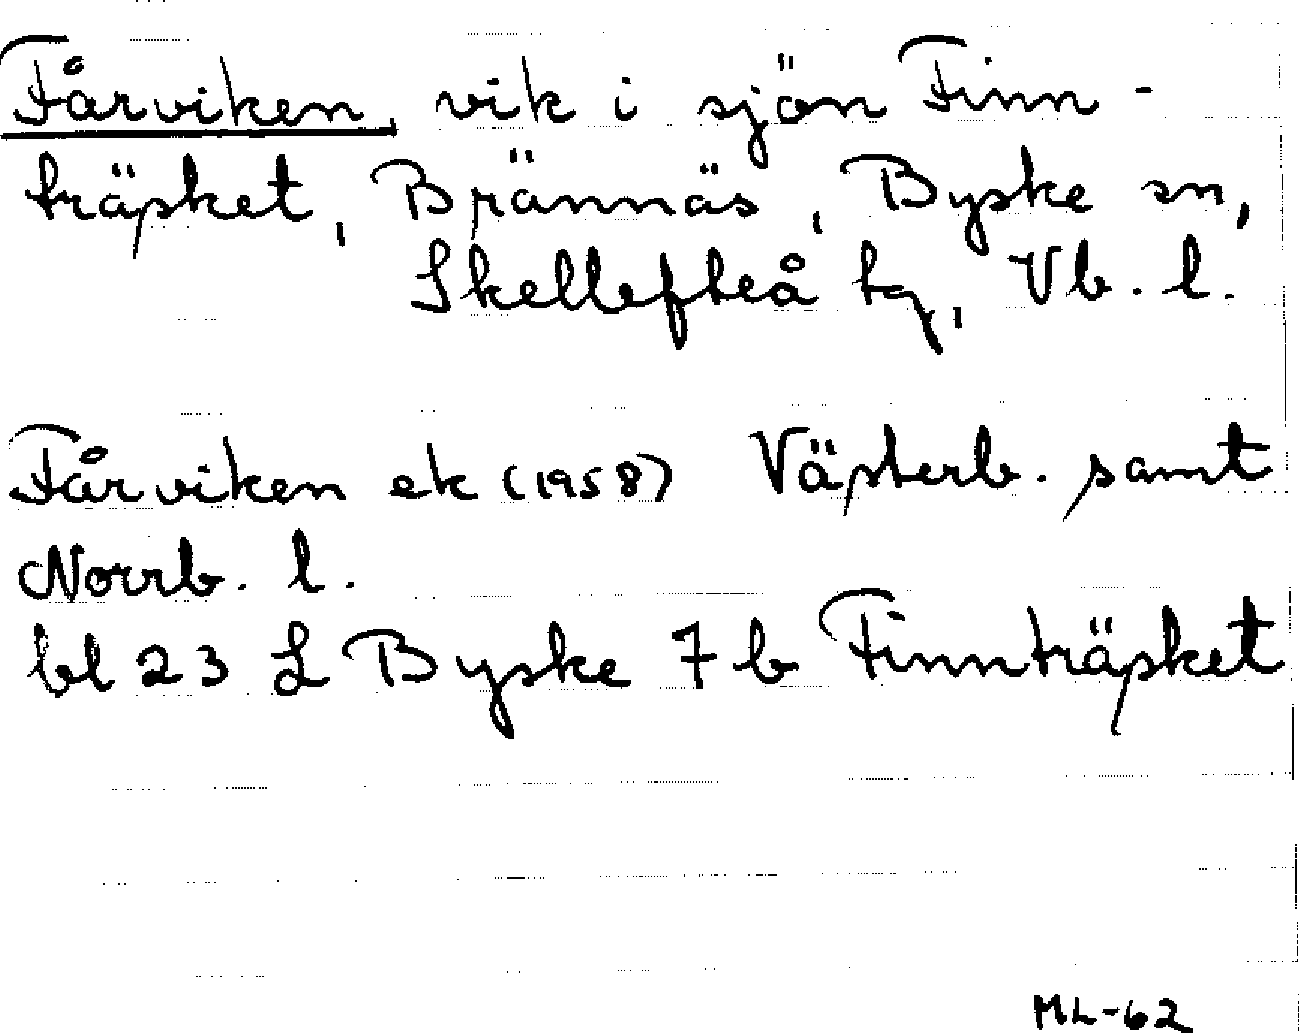 Fårviken, vik i sjön Finn-
träsket, Brännäs, Byske sn,
Skellefteå tg, Vb. l.
Fårviken ek (1958) Västerb. samt
Norrb. l.
bl 23 L Byske 7 b Finnträsket
ML-62